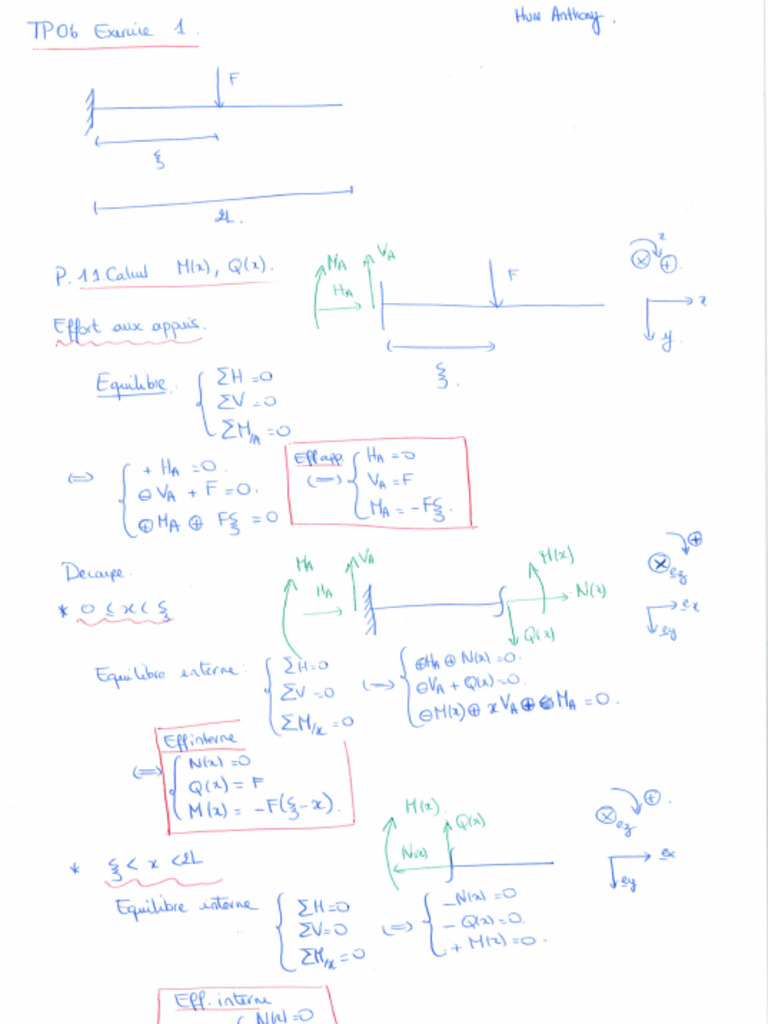 TP06 Exercice 1.
Huw Anthony.
F
ξ
2L.
P. 1.1 Calcul M(x), Q(x).
M_A V_A
H_A
F
ξ.
z
⊗ ⊕.
x
y.
Effort aux appuis.
Equilibre. { ΣH = 0
ΣV = 0
ΣM/A = 0
⇔ { + H_A = 0.
⊖ V_A + F = 0.
⊕ M_A ⊕ Fξ = 0
Eff app.
⇔ { H_A = 0
V_A = F
M_A = -Fξ.
Decoupe.
* 0 ≤ x < ξ
M_A H_A V_A
M(x)
N(x)
Q(x)
⊕
⊗ ez
ex
ey
Equilibre interne: { ΣH = 0
ΣV = 0
ΣM/x = 0
⇔ { ⊕H_A ⊕ N(x) = 0.
⊖V_A + Q(x) = 0.
⊖M(x) ⊕ x V_A ⊕ M_A = 0.
Eff interne
⇔ { N(x) = 0
Q(x) = F
M(x) = -F(ξ-x).
* ξ < x < 2L
M(x). Q(x)
N(x)
⊕.
⊗ ez
ex
ey
Equilibre interne { ΣH = 0
ΣV = 0
ΣM/x = 0
⇔ { -N(x) = 0
- Q(x) = 0.
+ M(x) = 0.
Eff. interne
{ N(x) = 0